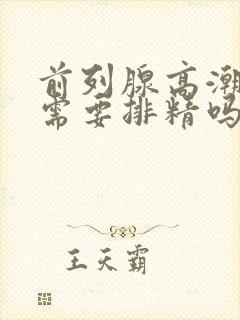 前列腺高潮
需要排精吗
王天霸